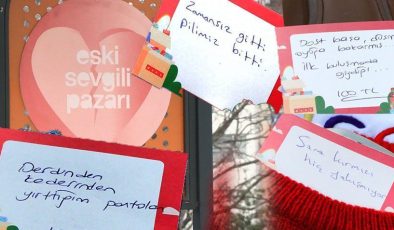 eski
sevgili
pazarı
Zamansız gitti
Pilimiz bitti.
Dost başa, düşman
ayağa bakarmış.
İlk buluşmanda
giydiği...
100 TL
Derdinden
kederinden
yırttığım pantolon
Sana kırmızı
hiç yakışmıyor